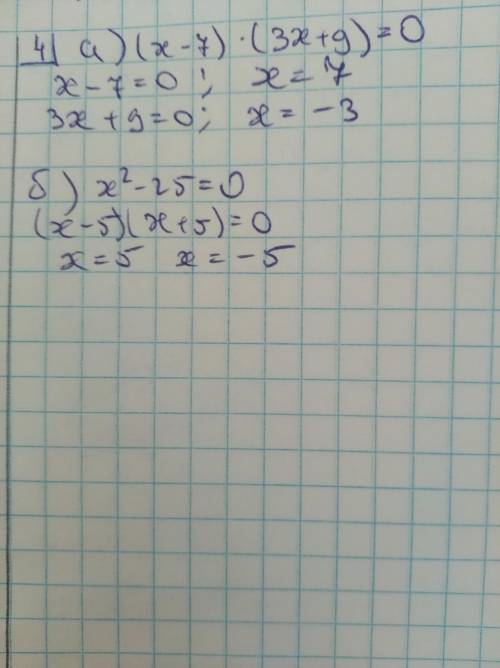 4) а) (x-7)·(3x+9)=0
x-7=0; x=7
3x+9=0; x=-3
б) x²-25=0
(x-5)(x+5)=0
x=5 x=-5